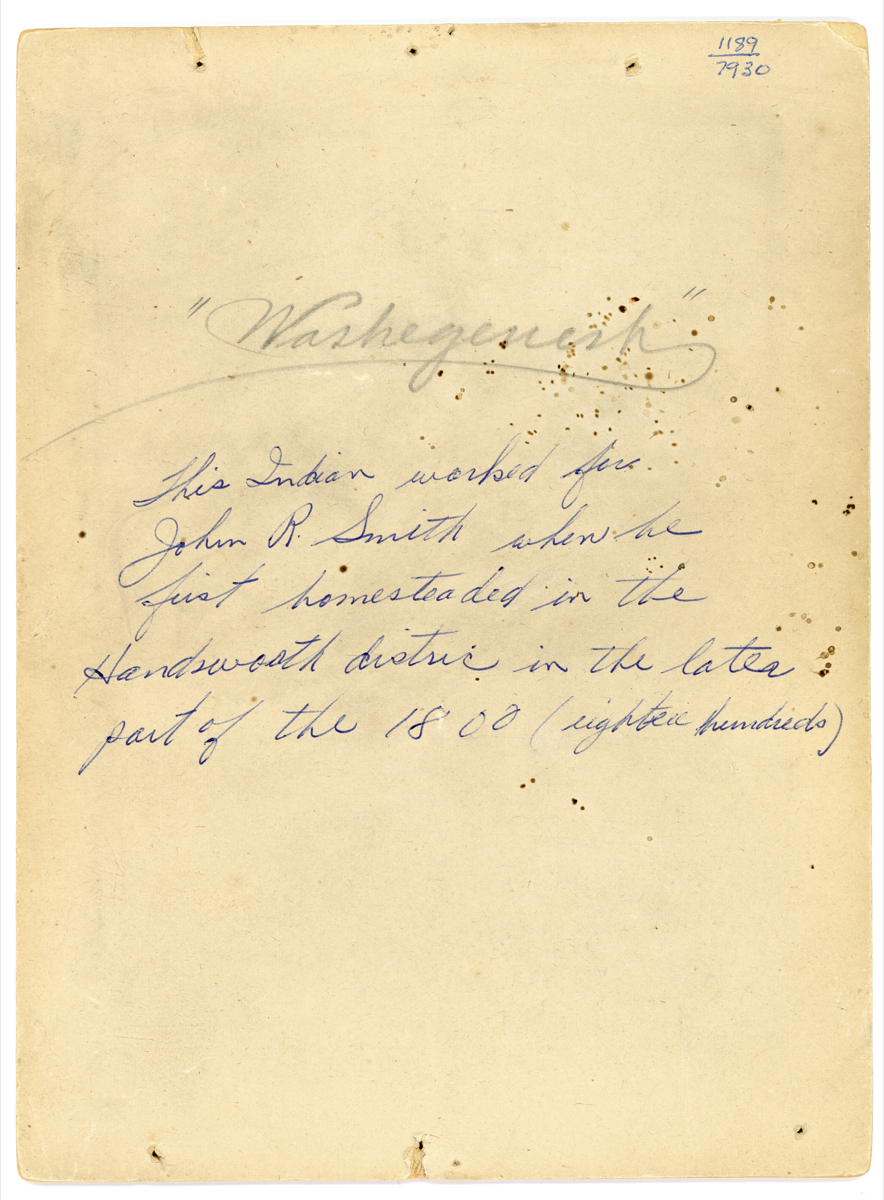 1189
7930
"Washegenesh"
This Indian worked for
John R. Smith when he
first homesteaded in the
Handsworth distric in the later
part of the 1800 (eighteen hundreds)